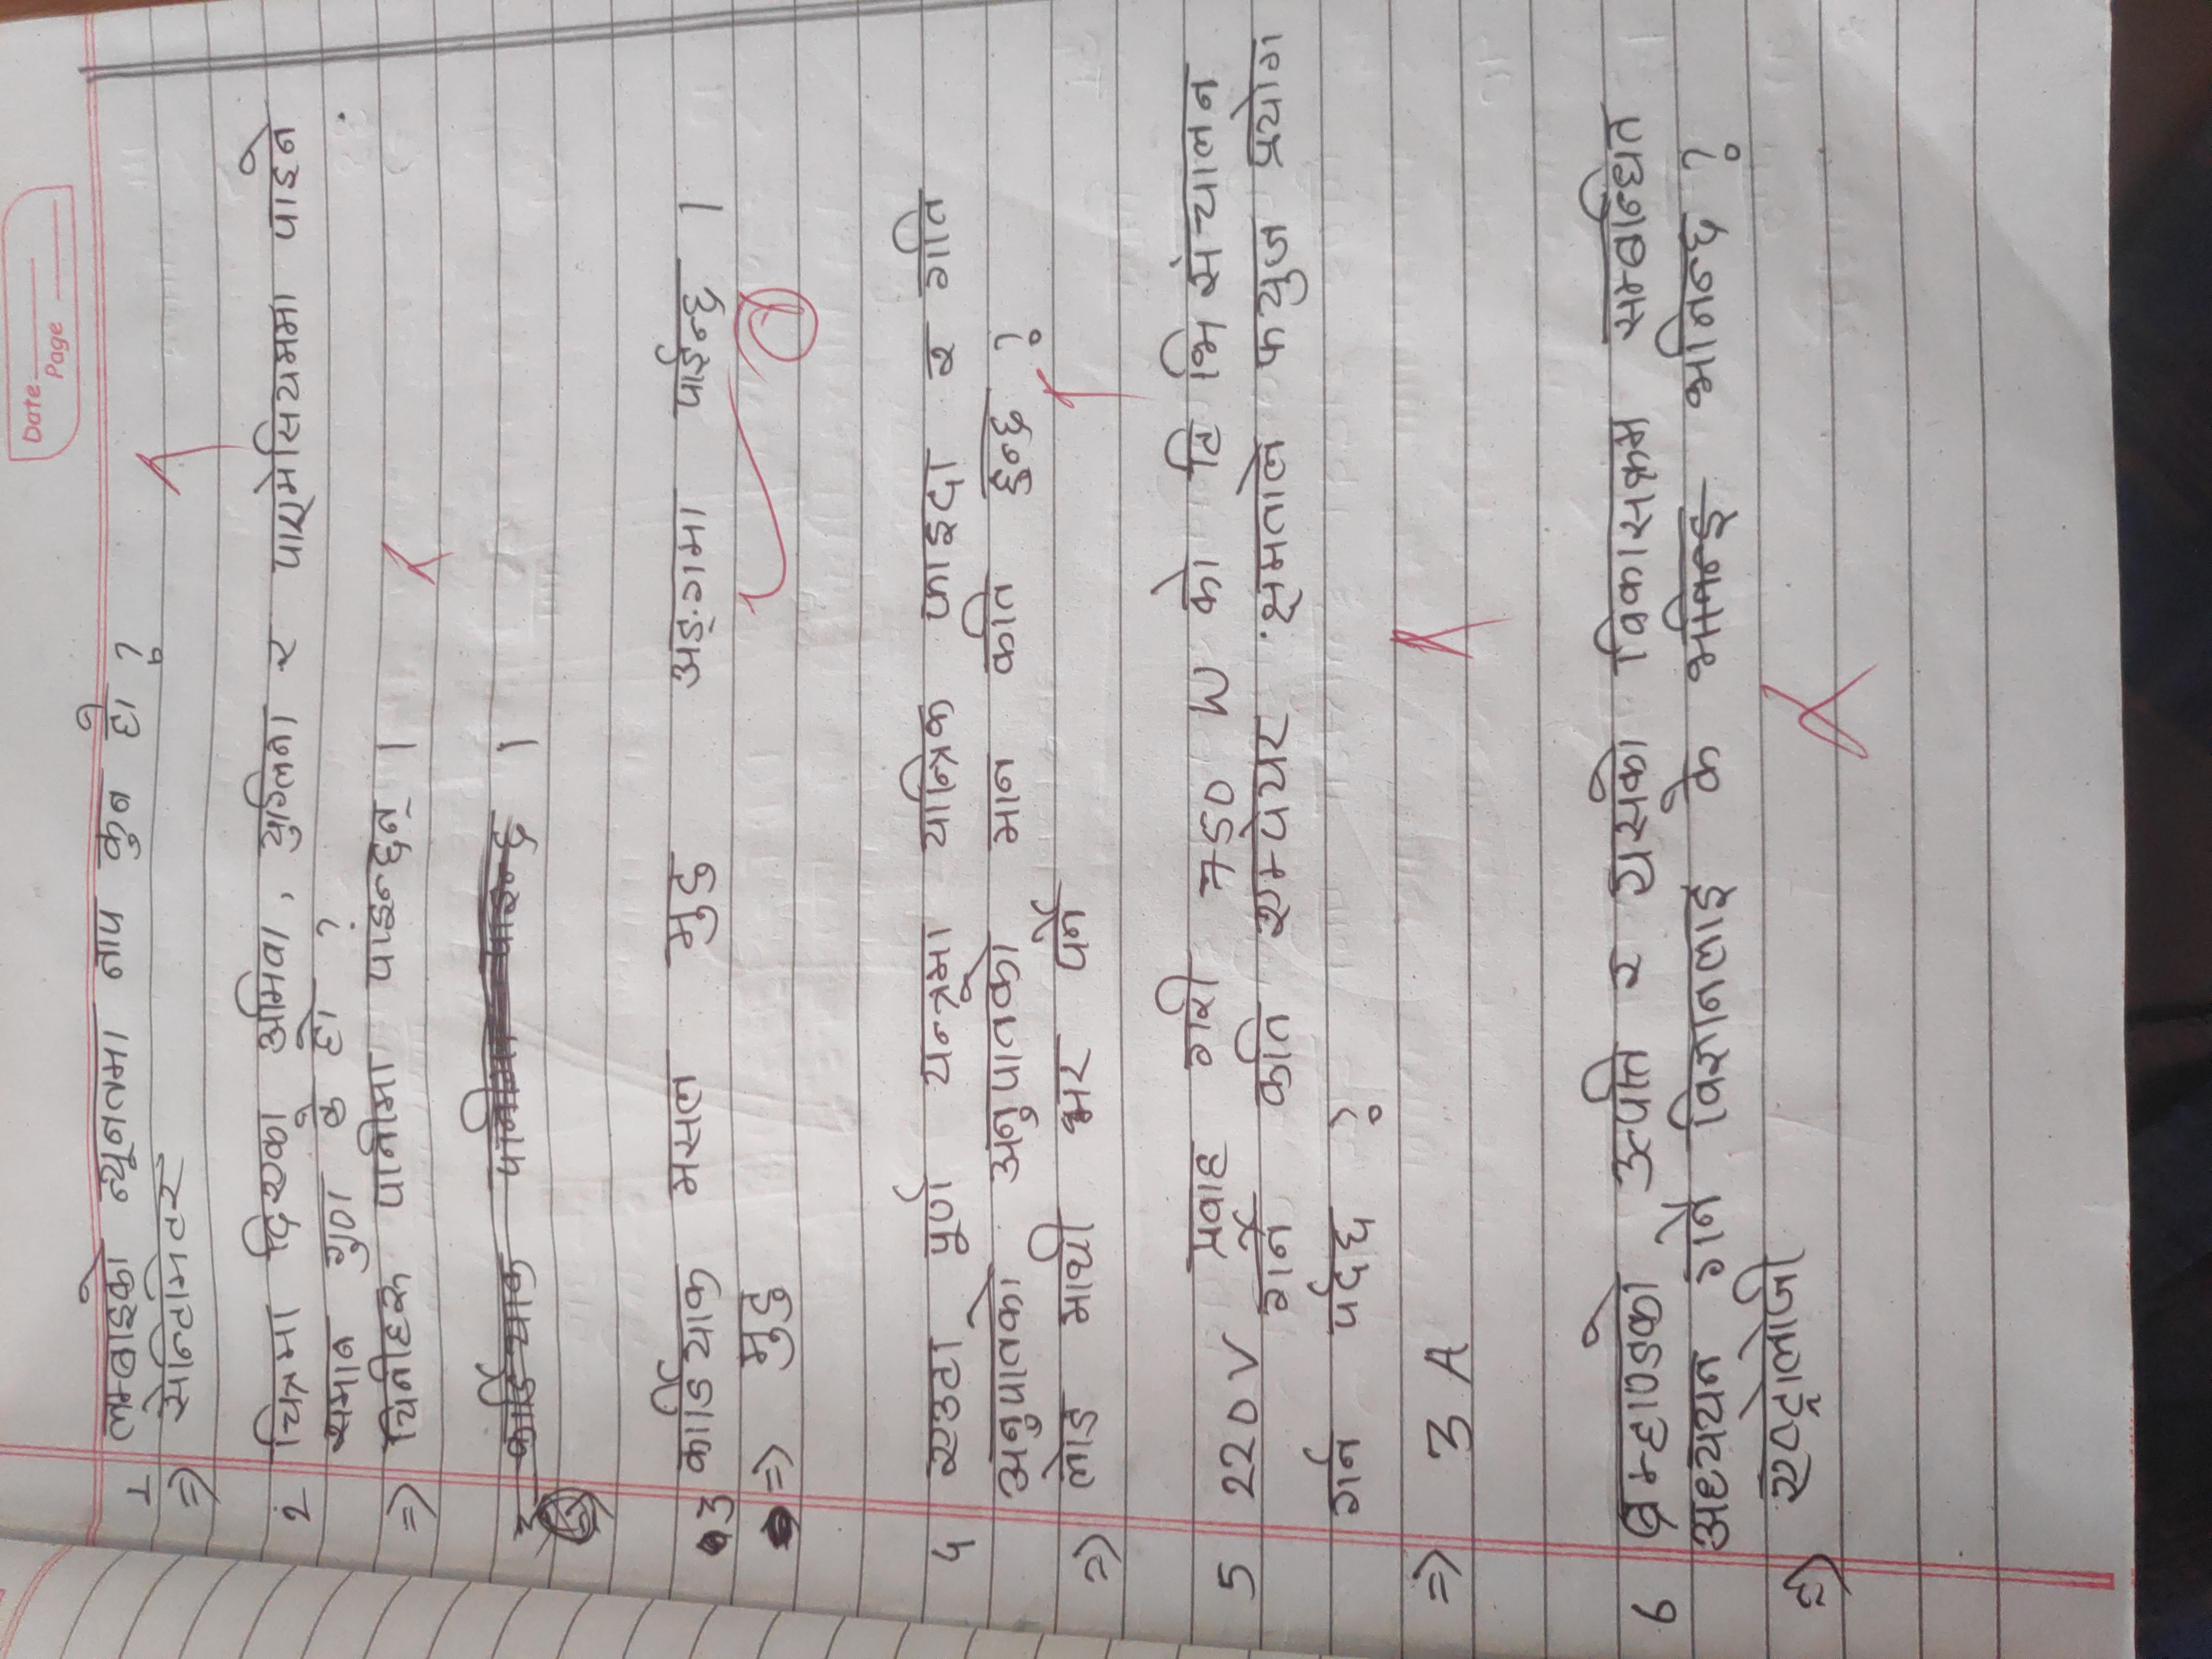 Date
Page
1 लम्बाइको न्यूनतमा नाप कुन हो ?
=> सेन्टिमिटर
2 चित्रमा दिएका अमिवा , युग्लिना र पाएमेसियममा पाइने
समान गुण के हो ?
=> यिनीहरु पानीमा पाइन्छन् ।
3 कार्डियाक पानीमा पाइन्छ ।
3 कार्डियाक मसल मुटु अङ्गमा पाईन्छ ।
=> मुटु
४ एउटा पूर्ण यन्त्रमा यान्त्रिक फाइदा र गति
अनुपातको अनुपातको मान कति हुन्छ ?
=> लोड माथी भर पर्ने
5 220V प्रवाह गरी 750 W को टि भि संचालन
गर्ने कति एम्पेयर क्षमताले फयुज प्रयोग
गर्न पर्दछ ?
=> 3 A
6 ब्रम्हाण्डको उत्पति र यसको विकासक्रम सम्बन्धित
अध्ययन गर्ने विज्ञानलाइ के भनिन्छ ?
=> एष्ट्रोलोजी